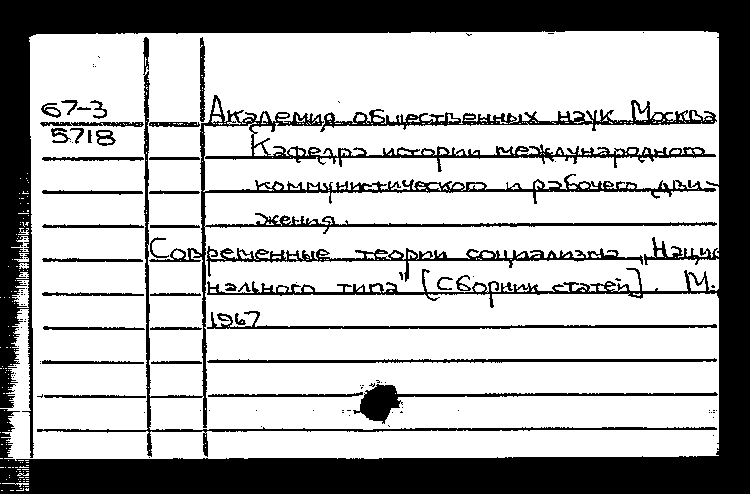 67-3
5718
Академия общественных наук Москва
Кафедра истории международного
коммунистического и рабочего дви-
жения.
Современные теории социализма „Нацио
нального типа" [Сборник статей]. М.,
1967